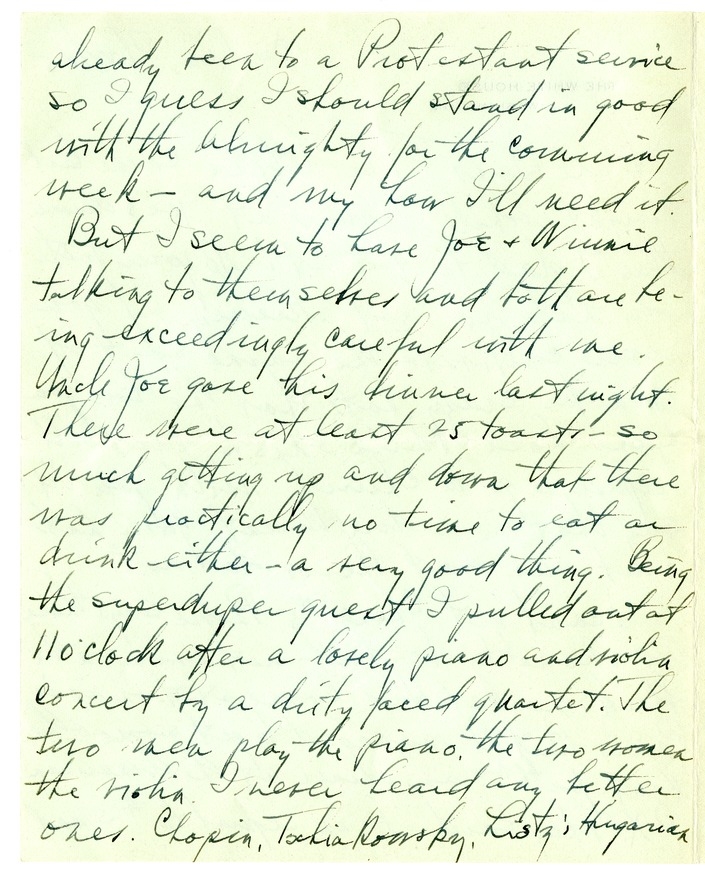 already been to a Protestant service
so I guess I should stand in good
with the Almighty for the comming
week - and my how I'll need it.
But I seem to have Joe + Winnie
talking to themselves and both are be-
ing exceedingly careful with me.
Uncle Joe gave his dinner last night.
There were at least 25 toasts - so
much getting up and down that there
was practically no time to eat or
drink either - a very good thing. Being
the superduper guest I pulled out at
11 o'clock after a lovely piano and violin
concert by a dirty faced quartet. The
two men play the piano, the two women
the violin. I never heard any better
ones. Chopin, Tschiakowsky, Listz's Hungarian
THE WHITE HOUSE